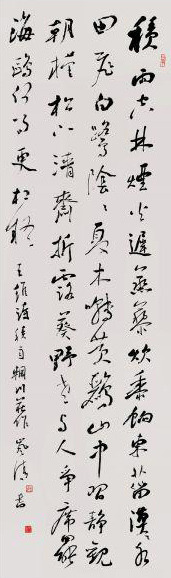 積雨空林煙火遲蒸藜炊黍餉東菑漠〻水
田飛白鷺陰〻夏木囀黃鸝山中習靜觀
朝槿松下清齋折露葵野老与人爭席罷
海鷗何事更相疑 王維詩積雨輞川莊作 書